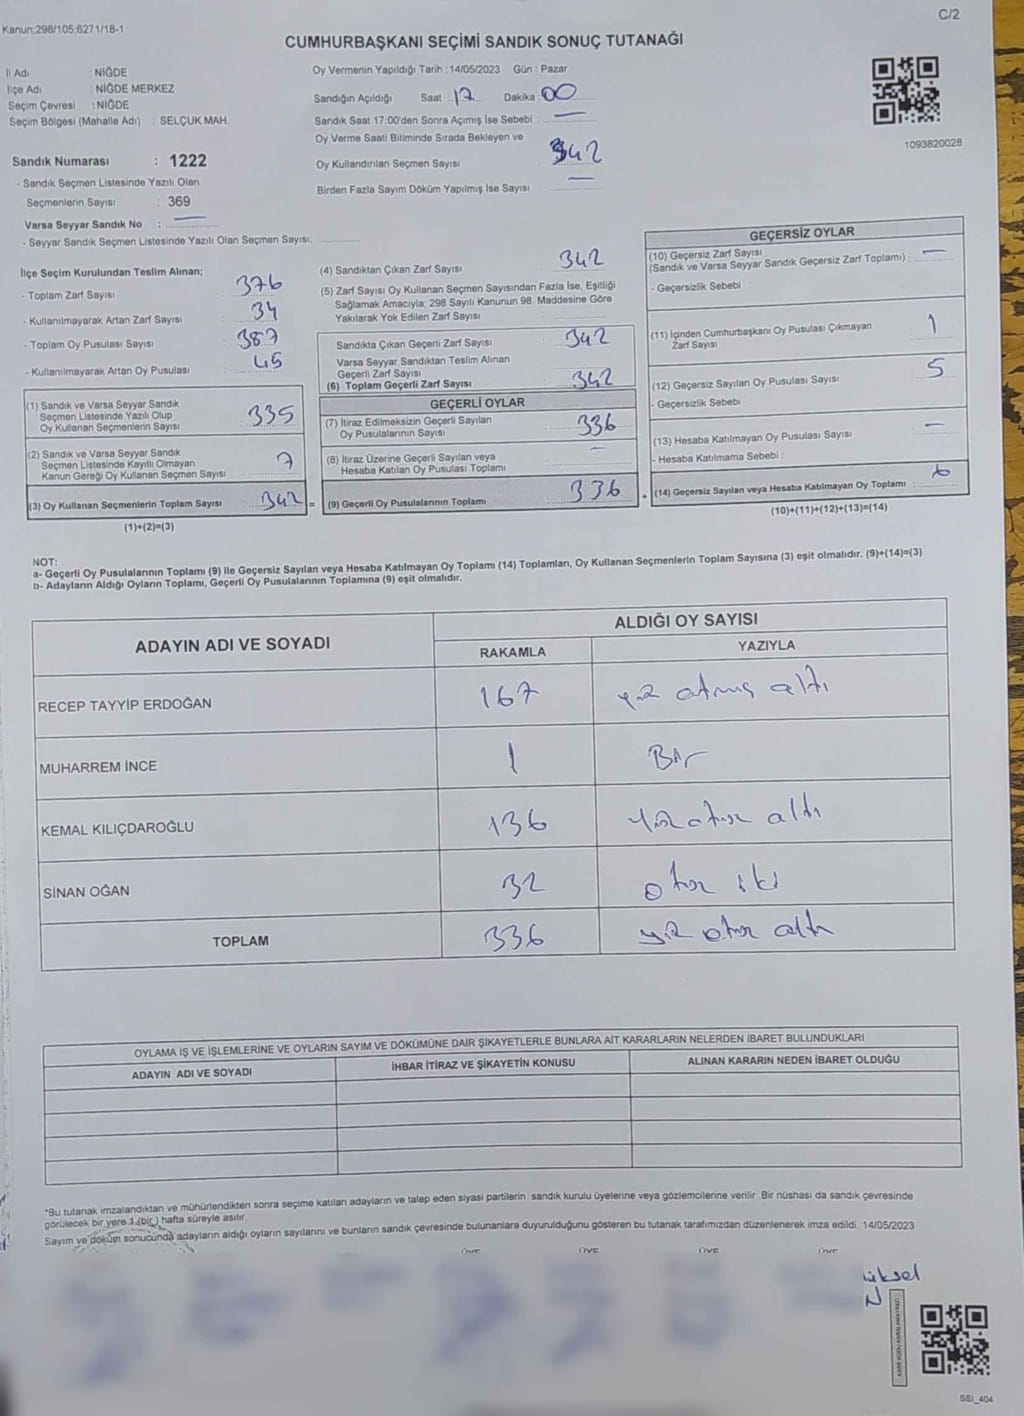 C/2
Kanun:298/105,6271/18-1
CUMHURBAŞKANI SEÇİMİ SANDIK SONUÇ TUTANAĞI
İl Adı : NİĞDE
İlçe Adı : NİĞDE MERKEZ
Seçim Çevresi : NİĞDE
Seçim Bölgesi (Mahalle Adı) : SELÇUK MAH.
Sandık Numarası : 1222
- Sandık Seçmen Listesinde Yazılı Olan
Seçmenlerin Sayısı : 369
Varsa Seyyar Sandık No : —
- Seyyar Sandık Seçmen Listesinde Yazılı Olan Seçmen Sayısı: ............
Oy Vermenin Yapıldığı Tarih :14/05/2023 Gün : Pazar
Sandığın Açıldığı Saat 17 Dakika :00
Sandık Saat 17:00'den Sonra Açımış İse Sebebi : —
Oy Verme Saati Bitiminde Sırada Bekleyen ve
Oy Kullandırılan Seçmen Sayısı : 342
Birden Fazla Sayım Döküm Yapılmış İse Sayısı : —
1093820028
İlçe Seçim Kurulundan Teslim Alınan;
- Toplam Zarf Sayısı : 376
- Kullanılmayarak Artan Zarf Sayısı : 34
- Toplam Oy Pusulası Sayısı : 387
- Kullanılmayarak Artan Oy Pusulası : 45
(1) Sandık ve Varsa Seyyar Sandık
Seçmen Listesinde Yazılı Olup
Oy Kullanan Seçmenlerin Sayısı : 335
(2) Sandık ve Varsa Seyyar Sandık
Seçmen Listesinde Kayıtlı Olmayan
Kanun Gereği Oy Kullanan Seçmen Sayısı : 7
(3) Oy Kullanan Seçmenlerin Toplam Sayısı : 342 =
(1)+(2)=(3)
(4) Sandıktan Çıkan Zarf Sayısı : 342
(5) Zarf Sayısı Oy Kullanan Seçmen Sayısından Fazla İse, Eşitliği
Sağlamak Amacıyla, 298 Sayılı Kanunun 98. Maddesine Göre
Yakılarak Yok Edilen Zarf Sayısı :
Sandıkta Çıkan Geçerli Zarf Sayısı : 342
Varsa Seyyar Sandıktan Teslim Alınan
Geçerli Zarf Sayısı
(6) Toplam Geçerli Zarf Sayısı : 342
GEÇERLİ OYLAR
(7) İtiraz Edilmeksizin Geçerli Sayılan
Oy Pusulalarının Sayısı : 336
(8) İtiraz Üzerine Geçerli Sayılan veya
Hesaba Katılan Oy Pusulası Toplamı : —
(9) Geçerli Oy Pusulalarının Toplamı : 336 +
GEÇERSİZ OYLAR
(10) Geçersiz Zarf Sayısı
(Sandık ve Varsa Seyyar Sandık Geçersiz Zarf Toplamı) : —
- Geçersizlik Sebebi :
(11) İçinden Cumhurbaşkanı Oy Pusulası Çıkmayan
Zarf Sayısı : 1
(12) Geçersiz Sayılan Oy Pusulası Sayısı : 5
- Geçersizlik Sebebi :
(13) Hesaba Katılmayan Oy Pusulası Sayısı : —
- Hesaba Katılmama Sebebi :
(14) Geçersiz Sayılan veya Hesaba Katılmayan Oy Toplamı : 6
(10)+(11)+(12)+(13)=(14)
NOT:
a- Geçerli Oy Pusulalarının Toplamı (9) ile Geçersiz Sayılan veya Hesaba Katılmayan Oy Toplamı (14) Toplamları, Oy Kullanan Seçmenlerin Toplam Sayısına (3) eşit olmalıdır. (9)+(14)=(3)
b- Adayların Aldığı Oyların Toplamı, Geçerli Oy Pusulalarının Toplamına (9) eşit olmalıdır.
ADAYIN ADI VE SOYADI ALDIĞI OY SAYISI
RAKAMLA YAZIYLA
RECEP TAYYİP ERDOĞAN 167 yüz atmış altı
MUHARREM İNCE 1 Bir
KEMAL KILIÇDAROĞLU 136 Yüz otuz altı
SİNAN OĞAN 32 otuz iki
TOPLAM 336 yüz otuz altı
OYLAMA İŞ VE İŞLEMLERİNE VE OYLARIN SAYIM VE DÖKÜMÜNE DAİR ŞİKAYETLERLE BUNLARA AİT KARARLARIN NELERDEN İBARET BULUNDUKLARI
ADAYIN ADI VE SOYADI İHBAR İTİRAZ VE ŞİKAYETİN KONUSU ALINAN KARARIN NEDEN İBARET OLDUĞU
*Bu tutanak imzalandıktan ve mühürlendikten sonra seçime katılan adayların ve talep eden siyasi partilerin sandık kurulu üyelerine veya gözlemcilerine verilir. Bir nüshası da sandık çevresinde
görülecek bir yere 1 (bir) hafta süreyle asılır.
Sayım ve döküm sonucunda adayların aldığı oyların sayılarını ve bunların sandık çevresinde bulunanlara duyurulduğunu gösteren bu tutanak tarafımızdan düzenlenerek imza edildi. 14/05/2023
ÜYE ÜYE ÜYE ÜYE
SSI_404